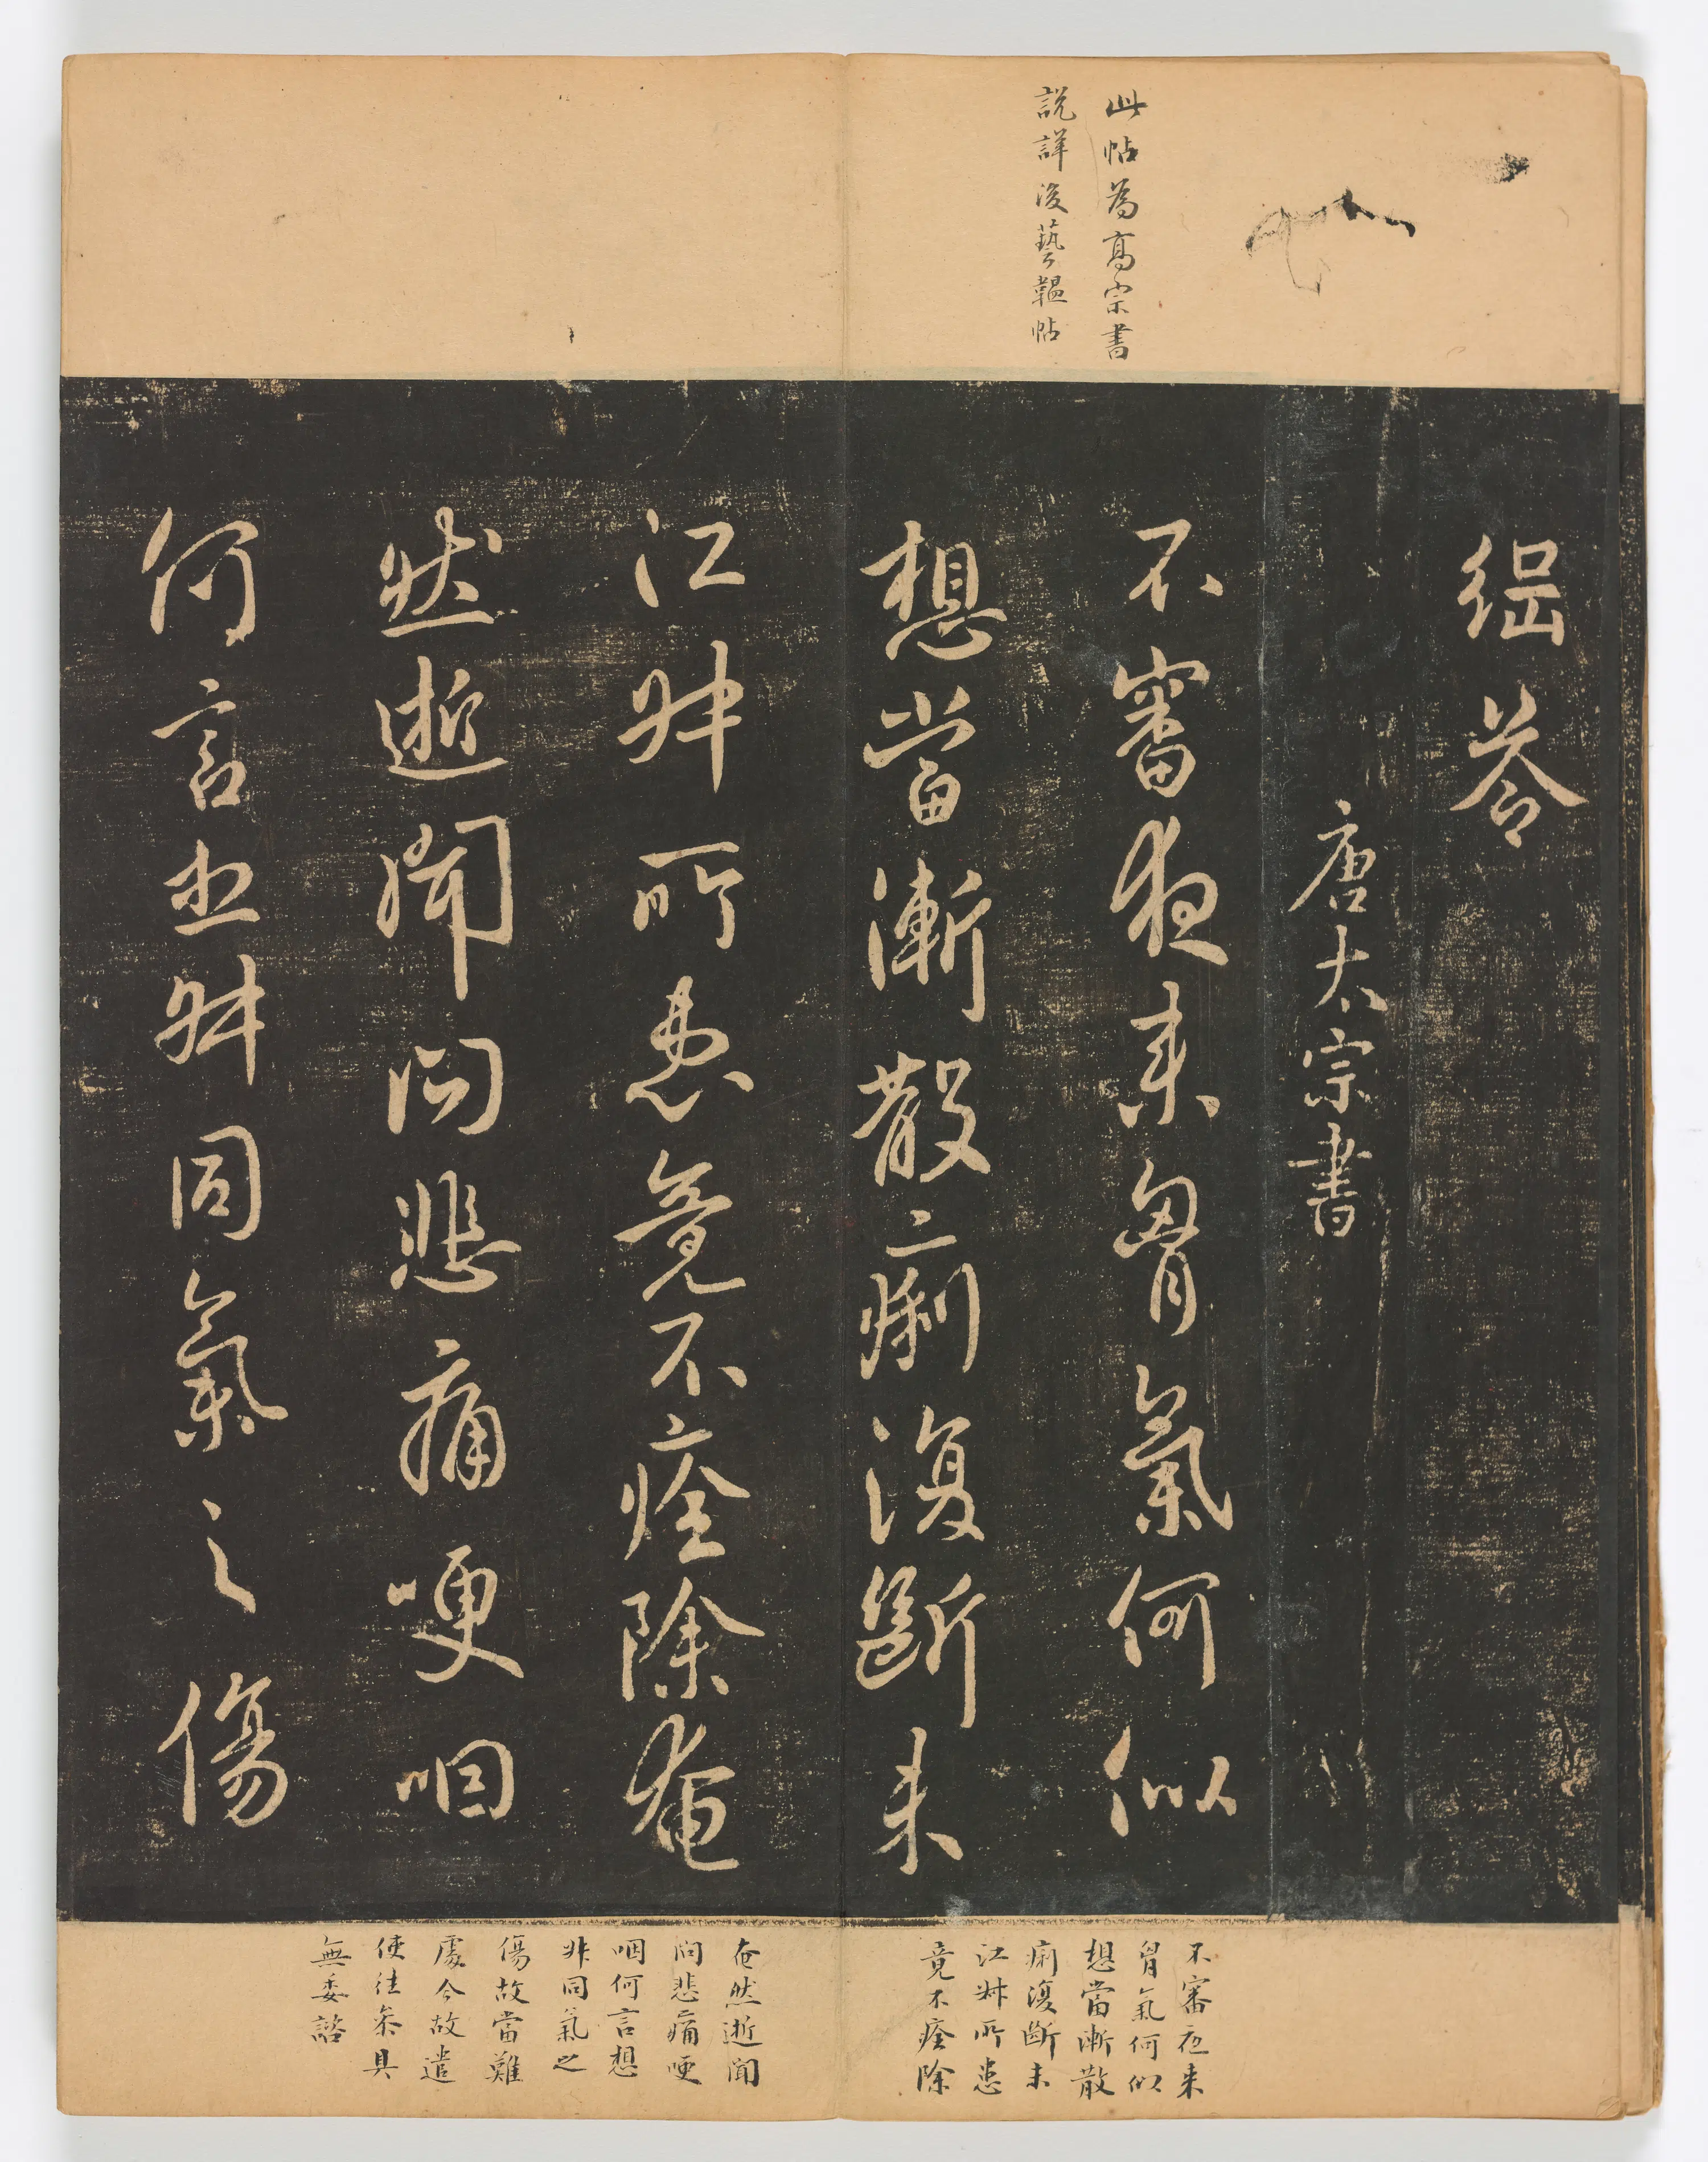 此帖為高宗書
說詳後藝韞帖
答
唐太宗書
不審夜来胷氣何似
想當漸散痢復斷未
江叔所患竟不痊除奄
然逝聞問悲痛哽咽
何言想叔同氣之傷
不審夜来
胷氣何似
想當漸散
痢復斷未
江叔所患
竟不痊除
奄然逝聞
問悲痛哽
咽何言想
叔同氣之
傷故當難
處今故遣
使往叅具
無委諮